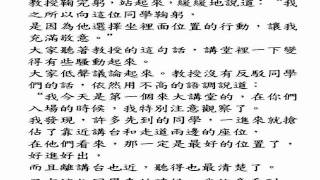 教授鞠完躬，站起來，緩緩地說道：“我
之所以向這位同學鞠躬，
是因為他選擇坐裡面位置的行動，讓我
充滿敬意。”
大家聽著教授的這句話，講堂裡一下變
得有些騷動起來。
大家低聲議論起來。教授沒有反駁同學
們的話，依然用不高的語調說道：
“我今天是第一個來大講堂的，在你們
入場的時候，我特別注意觀察了。
我發現，許多先到的同學，一進來就搶
佔了靠近講台和走道兩邊的座位，
在他們看來，那一定是最好的位置了，
好進好出，
而且離講台也近，聽得也最清楚了。